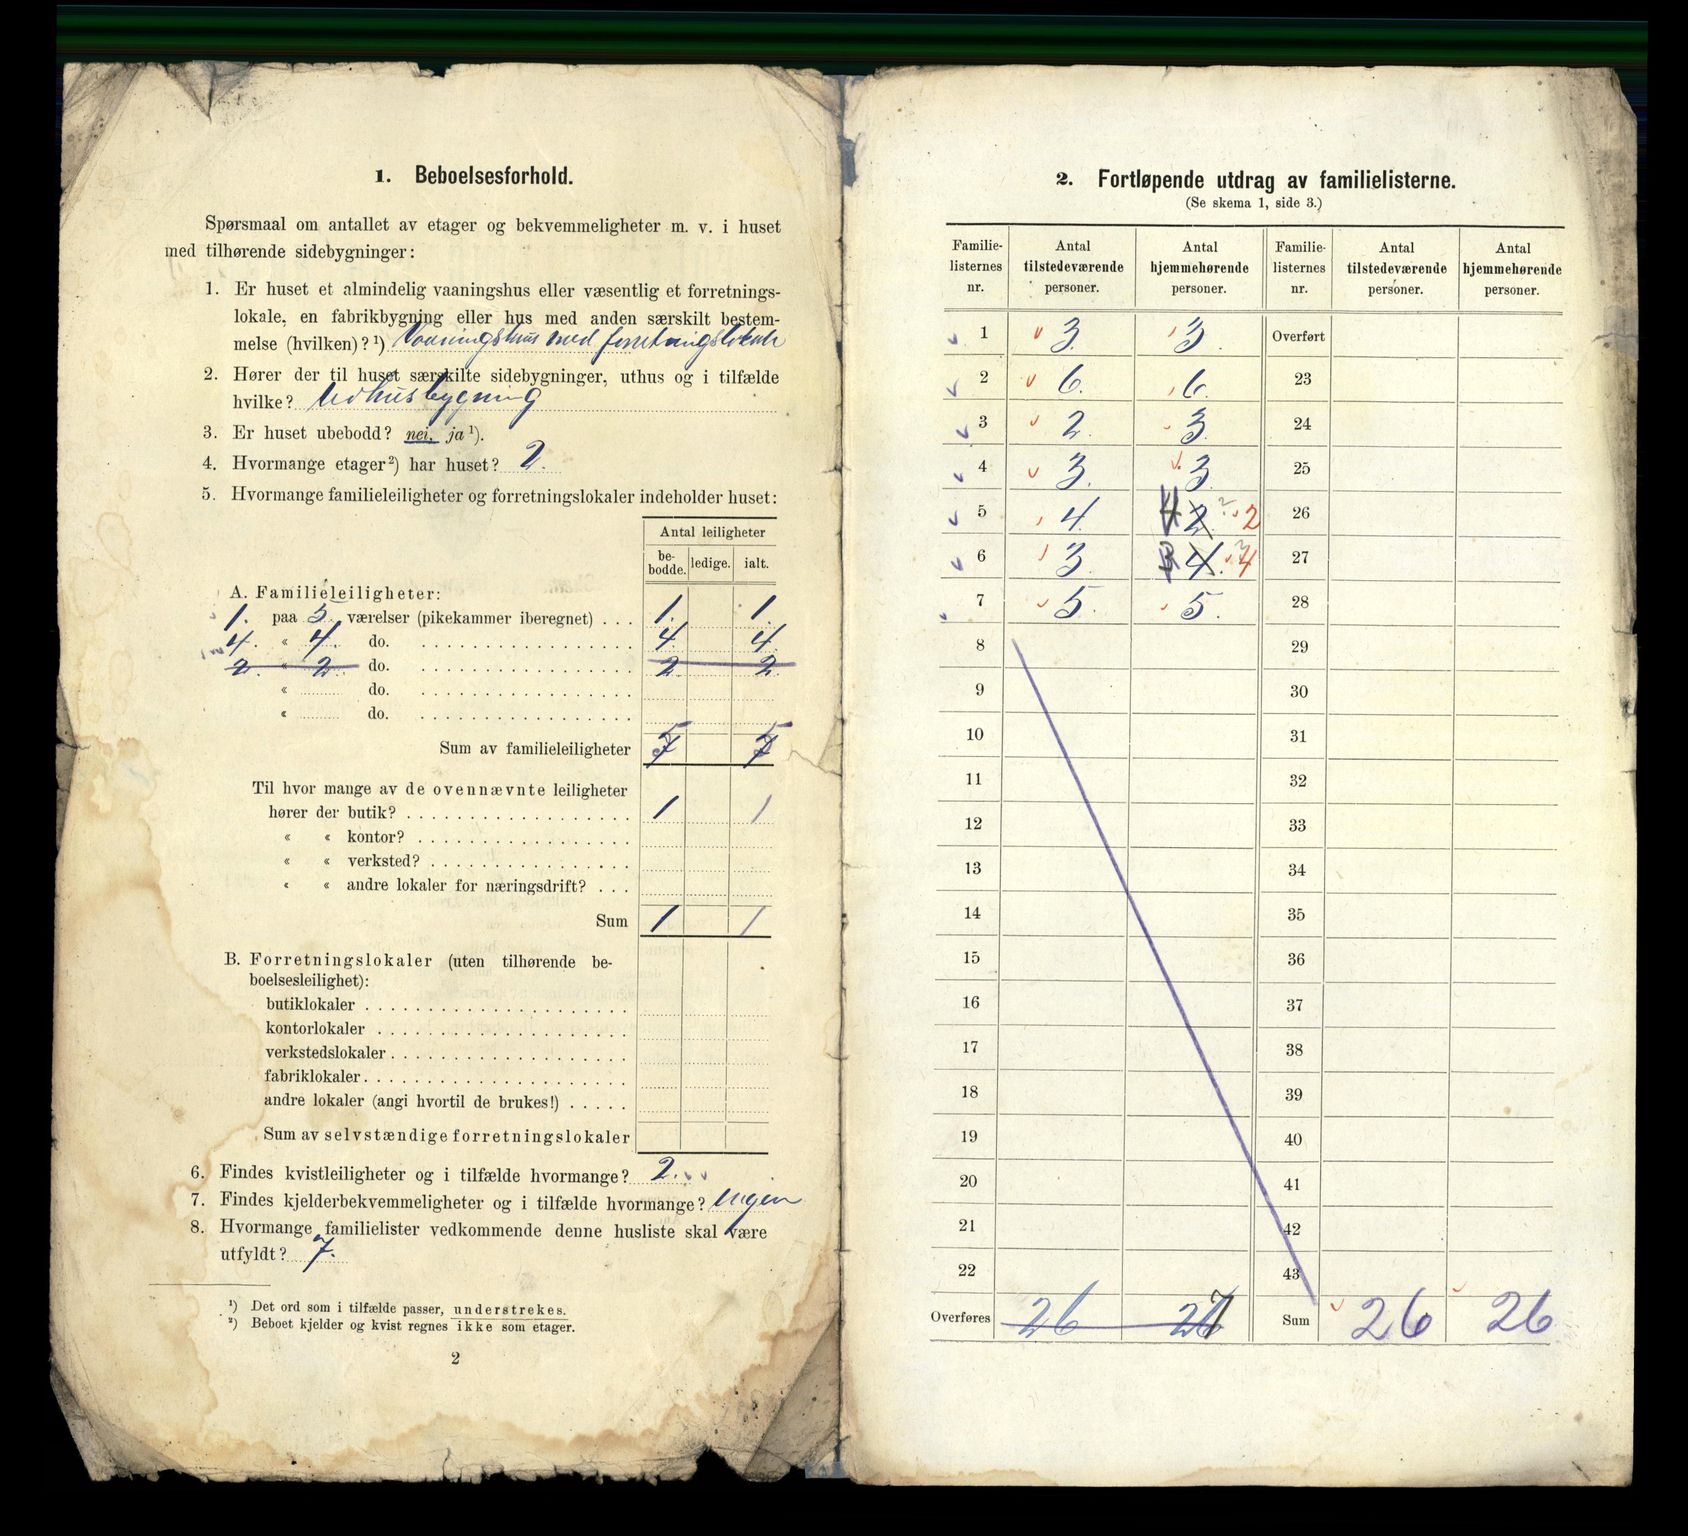 1. Beboelsesforhold.
Spørsmaal om antallet av etager og bekvemmeligheter m. v. i huset
med tilhørende sidebygninger:
1. Er huset et almindelig vaaningshus eller væsentlig et forretnings-
lokale, en fabrikbygning eller hus med anden særskilt bestem-
melse (hvilken)? ¹) Vaaningshus med forretningslokale
2. Hører der til huset særskilte sidebygninger, uthus og i tilfælde
hvilke? Udhusbygning
3. Er huset ubebodd? nei, ja ¹).
4. Hvormange etager ²) har huset? 2.
5. Hvormange familieleiligheter og forretningslokaler indeholder huset:
Antal leiligheter
be-bodde. ledige. ialt.
A. Familieleiligheter:
1. paa 5 værelser (pikekammer iberegnet) . . . 1. 1.
4. « 4. do. 4. 4.
2. « 2. do. 2. 2.
« do.
« do.
5 5
Sum av familieleiligheter 7 7
Til hvor mange av de ovennævnte leiligheter
hører der butik? 1 1
« « kontor?
« « verksted?
« « andre lokaler for næringsdrift? . . .
Sum 1 1
B. Forretningslokaler (uten tilhørende be-
boelsesleilighet):
butiklokaler
kontorlokaler
verkstedslokaler
fabriklokaler
andre lokaler (angi hvortil de brukes!)
Sum av selvstændige forretningslokaler
6. Findes kvistleiligheter og i tilfælde hvormange? 2.
7. Findes kjelderbekvemmeligheter og i tilfælde hvormange? Ingen
8. Hvormange familielister vedkommende denne husliste skal være
utfyldt? 7.
¹) Det ord som i tilfælde passer, understrekes.
²) Beboet kjelder og kvist regnes ikke som etager.
2
2. Fortløpende utdrag av familielisterne.
(Se skema 1, side 3.)
Familie- Antal Antal Familie- Antal Antal
listernes tilstedeværende hjemmehørende listernes tilstedeværende hjemmehørende
nr. personer. personer. nr. personer. personer.
1 3. 3. Overført
2 6. 6. 23
3 2. 3. 24
4 3. 3. 25
5 4. 4 2. ? 2 26
6 3. 3 4. 3 4 27
7 5. 5. 28
8 29
9 30
10 31
11 32
12 33
13 34
14 35
15 36
16 37
17 38
18 39
19 40
20 41
21 42
22 43
Overføres 26 267 Sum 26 26